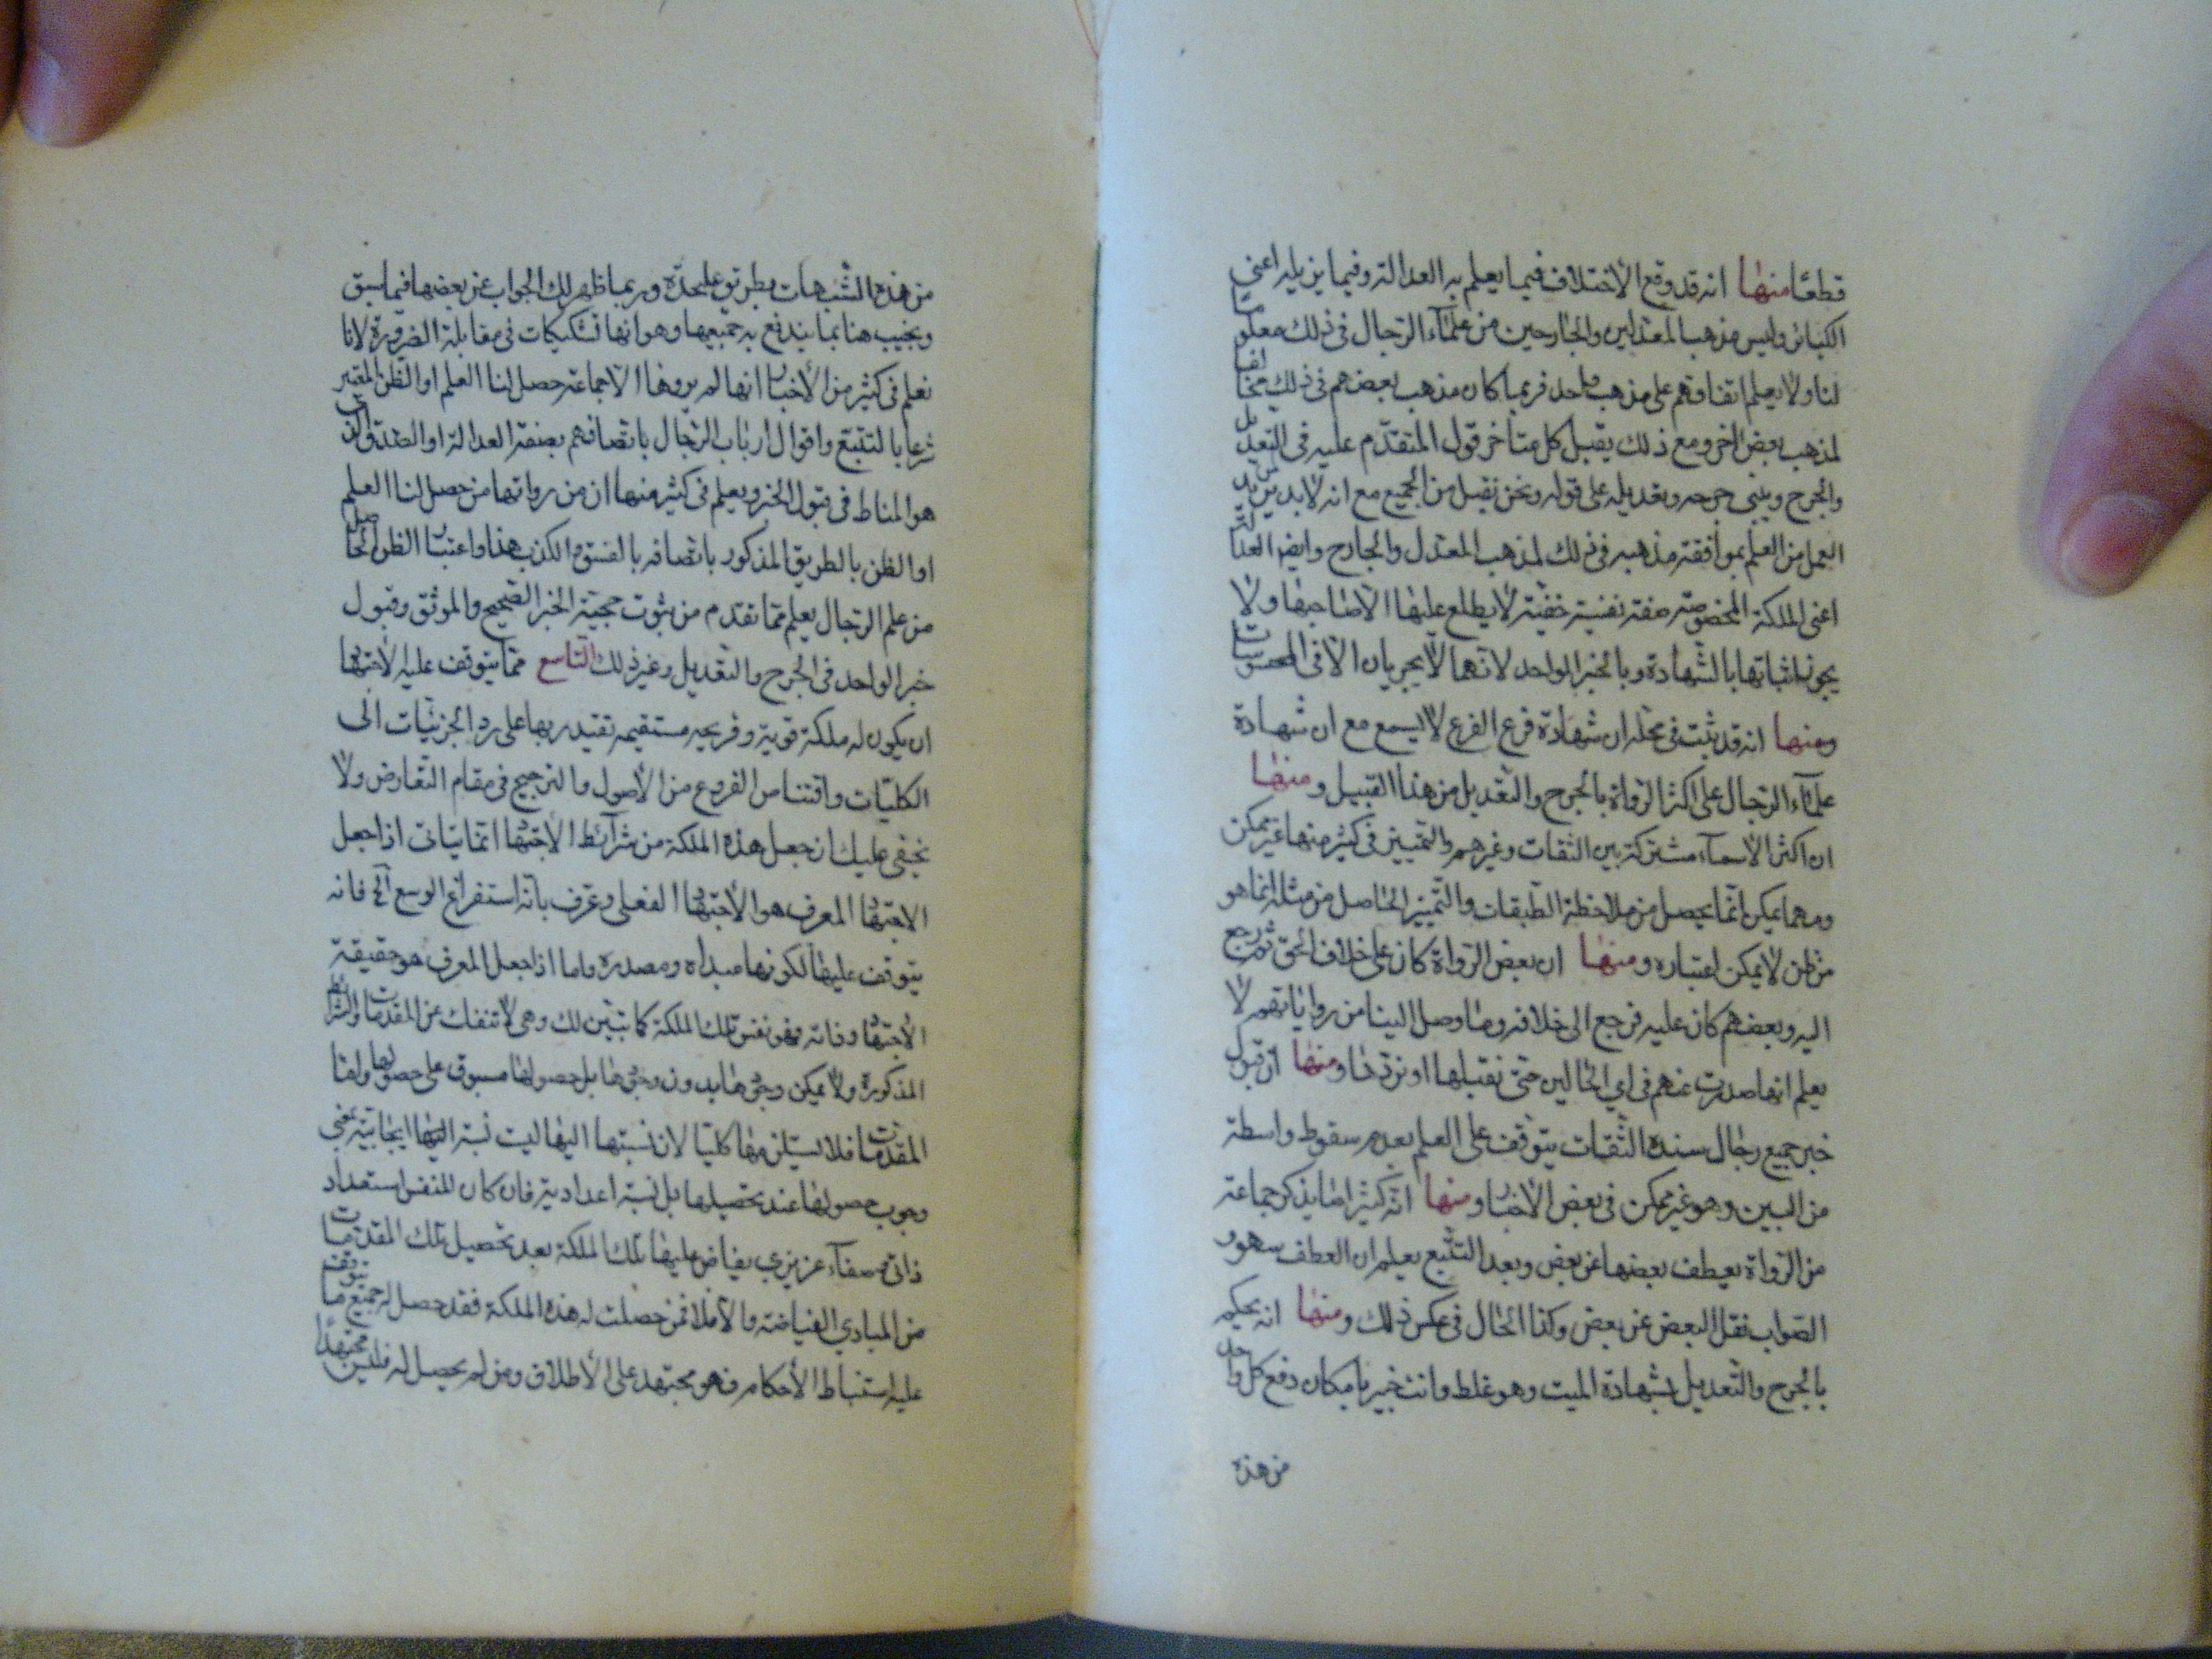 قطعا منها انه قد وقع الأختلاف فيما يعلم به العدالة وفيما يزيله اعنى
الكبائر وليس مذهب المعدلين والجارحين من علماء الرجال فى ذلك معلوما
لنا ولا يعلم اتفاقهم على مذهب واحد فربما كان مذهب بعضهم فى ذلك مخالفا
لمذهب بعض اخر ومع ذلك يقبل كل متاخر قول المتقدم عليه فى التعديل
والجرح ويبنى جرحه وتعديله على قوله ونحن نقبل من الجميع مع انه لا بد لمن يريد
العمل من العلم بموافقة مذهبه فى ذلك لمذهب المعدل والجارح وايضا العدالة
اعنى الملكة المخصوصة صفة نفسية خفية لا يطلع عليها الا صاحبها ولا
يجوز اثباتها بالشهادة وبالخبر الواحد لانهما لا يجريان الا فى المحسوسات
ومنها انه قد ثبت فى محله ان شهادة فرع الفرع لا يسمع مع ان شهادة
علماء الرجال على اكثر الرواة بالجرح والتعديل من هذا القبيل ومنها
ان اكثر الاسماء مشتركة بين الثقات وغيرهم والتمييز فى كثير منها غير ممكن
ومهما يمكن انما يحصل من ملاحظة الطبقات والتمييز الحاصل من مثله انما هو
من ظن لا يمكن اعتباره ومنها ان بعض الرواة كان على خلاف الحق ثم رجع
اليه وبعضهم كان عليه فرجع الى خلافه وما وصل الينا من رواياتهم لا
يعلم انها صدرت عنهم فى اي الحالين حتى نقبلها او نردها ومنها ان قبول
خبر جميع رجال سنده الثقات يتوقف على العلم بعدم سقوط واسطة
من البين وهو غير ممكن فى بعض الاخبار ومنها انه كثيرا ما يذكر جماعة
من الرواة بعطف بعضها عن بعض وبعد التتبع يعلم ان العطف سهو و
الصواب نقل البعض عن بعض وكذا الحال فى عكس ذلك ومنها انه يحكم
بالجرح والتعديل بشهادة الميت وهو غلط وانت خبير بامكان دفع كل واحد
من هذه
من هذه الشبهات بطريق عليحدة وربما ظهر لك الجواب عن بعضها فيما سبق
ونجيب هنا بما يندفع به جميعها وهو انها تشكيكات فى مقابلة الضرورة لانا
نعلم فى كثير من الأخبار انها لم يروها الا جماعة حصل لنا العلم او الظن المعتبر
شرعا بالتتبع واقوال ارباب الرجال باتصافهم بصفة العدالة او الصدق الذى
هو المناط فى قبول الخبر ويعلم فى كثير منها ان من رواتها من حصل لنا العلم
او الظن بالطريق المذكور باتصافه بالفسق والكذب هذا واعتبار الظن الحاصل
من علم الرجال يعلم مما تقدم من ثبوت حجية الخبر الصحيح والموثق وقبول
خبر الواحد فى الجرح والتعديل وغير ذلك التاسع مما يتوقف عليه الأجتهاد
ان يكون له ملكة قوية وقريحة مستقيمة تقيدر بها على رد الجزئيات الى
الكليات واقتناص الفروع من الأصول والترجيح فى مقام التعارض ولا
يخفى عليك ان جعل هذه الملكة من شرائط الاجتهاد انما يتاتى اذا جعل
الاجتهاد المعرف هو الأجتهاد الفعلى وعرف بانه استفراغ الوسع الخ فانه
يتوقف عليها لكونها مبداه ومصدره واما اذا جعل المعرف هو حقيقة
الأجتهاد فانه هو نفس تلك الملكة كما تبين لك وهى لا تنفك عن المقدمات والشرائط
المذكورة ولا يمكن وجودها بدون وجودها بل حصولها مسبوق على حصولها ولها
المقدمات فلا يستلزمها كليا لان نسبتها اليها ليست نسبة ايجابية يعنى
وجوب حصولها عند تحصيلها بل نسبة اعدادية فان كان للنفس استعداد
ذاتى وصفاء عزيزي يفاض عليها تلك الملكة بعد تحصيل تلك المقدمات
من المبادي الفياضة والا فلا فمن حصلت له هذه الملكة فقد حصل له جميع ما يتوقف
عليه استنباط الأحكام فهو مجتهد على الأطلاق ومن لم يحصل له فليس مجتهدا